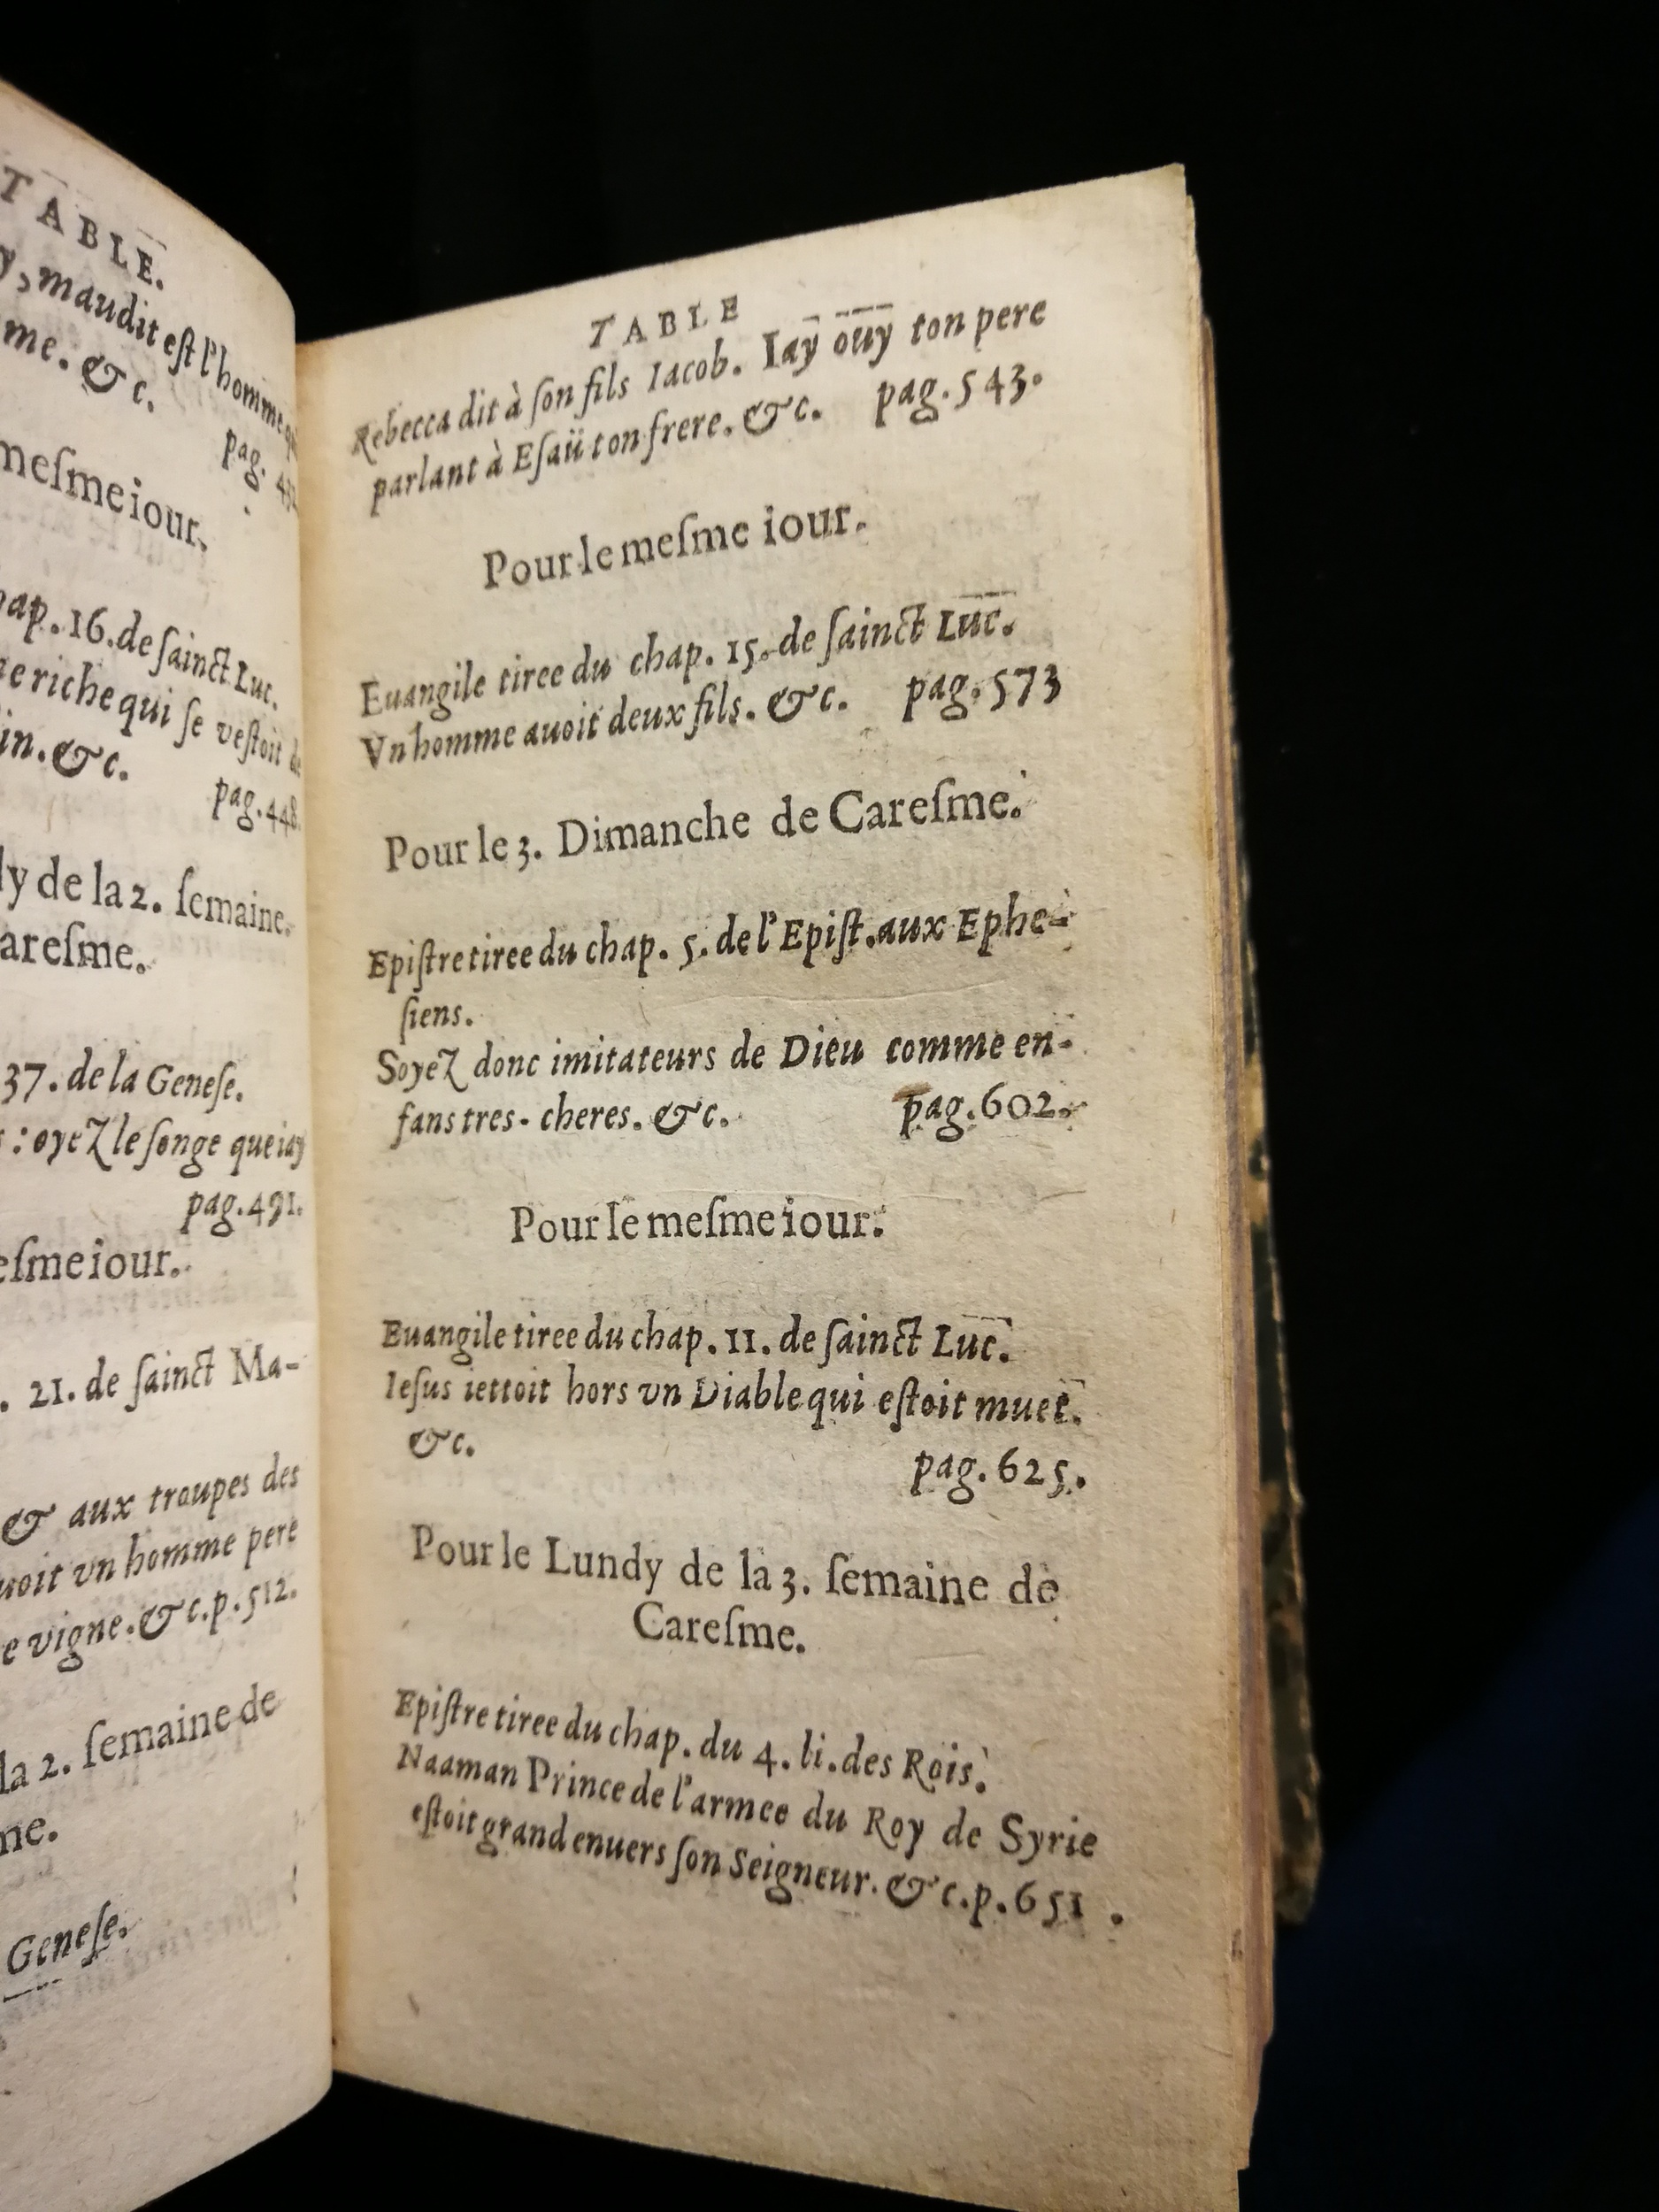 TABLE.
maudit est l'homme
me. &c.
pag.
mesme iour.
chap. 16. de sainct Luc.
riche qui se vestoit de
in. &c.
pag. 448.
de la 2. semaine
Caresme.
37. de la Genese.
: oyeζ le songe que iay
pag. 491.
mesme iour.
21. de sainct Ma-
& aux troupes des
vn homme pere
vigne. &c. p. 512.
la 2. semaine de
Genese.
TABLE
Rebecca dit à son fils Iacob. Iay ouy ton pere
parlant à Esaü ton frere. &c. pag. 543.
Pour le mesme iour.
Euangile tiree du chap. 15. de sainct Luc.
Vn homme auoit deux fils. &c. pag. 573
Pour le 3. Dimanche de Caresme.
Epistre tiree du chap. 5. de l'Epist. aux Ephe-
siens.
Soyez donc imitateurs de Dieu comme en-
fans tres-cheres. &c. pag. 602.
Pour le mesme iour.
Euangile tiree du chap. 11. de sainct Luc.
Iesus iettoit hors vn Diable qui estoit muet.
&c. pag. 625.
Pour le Lundy de la 3. semaine de
Caresme.
Epistre tiree du chap. du 4. li. des Rois.
Naaman Prince de l'armee du Roy de Syrie
estoit grand enuers son Seigneur. &c. p. 651.